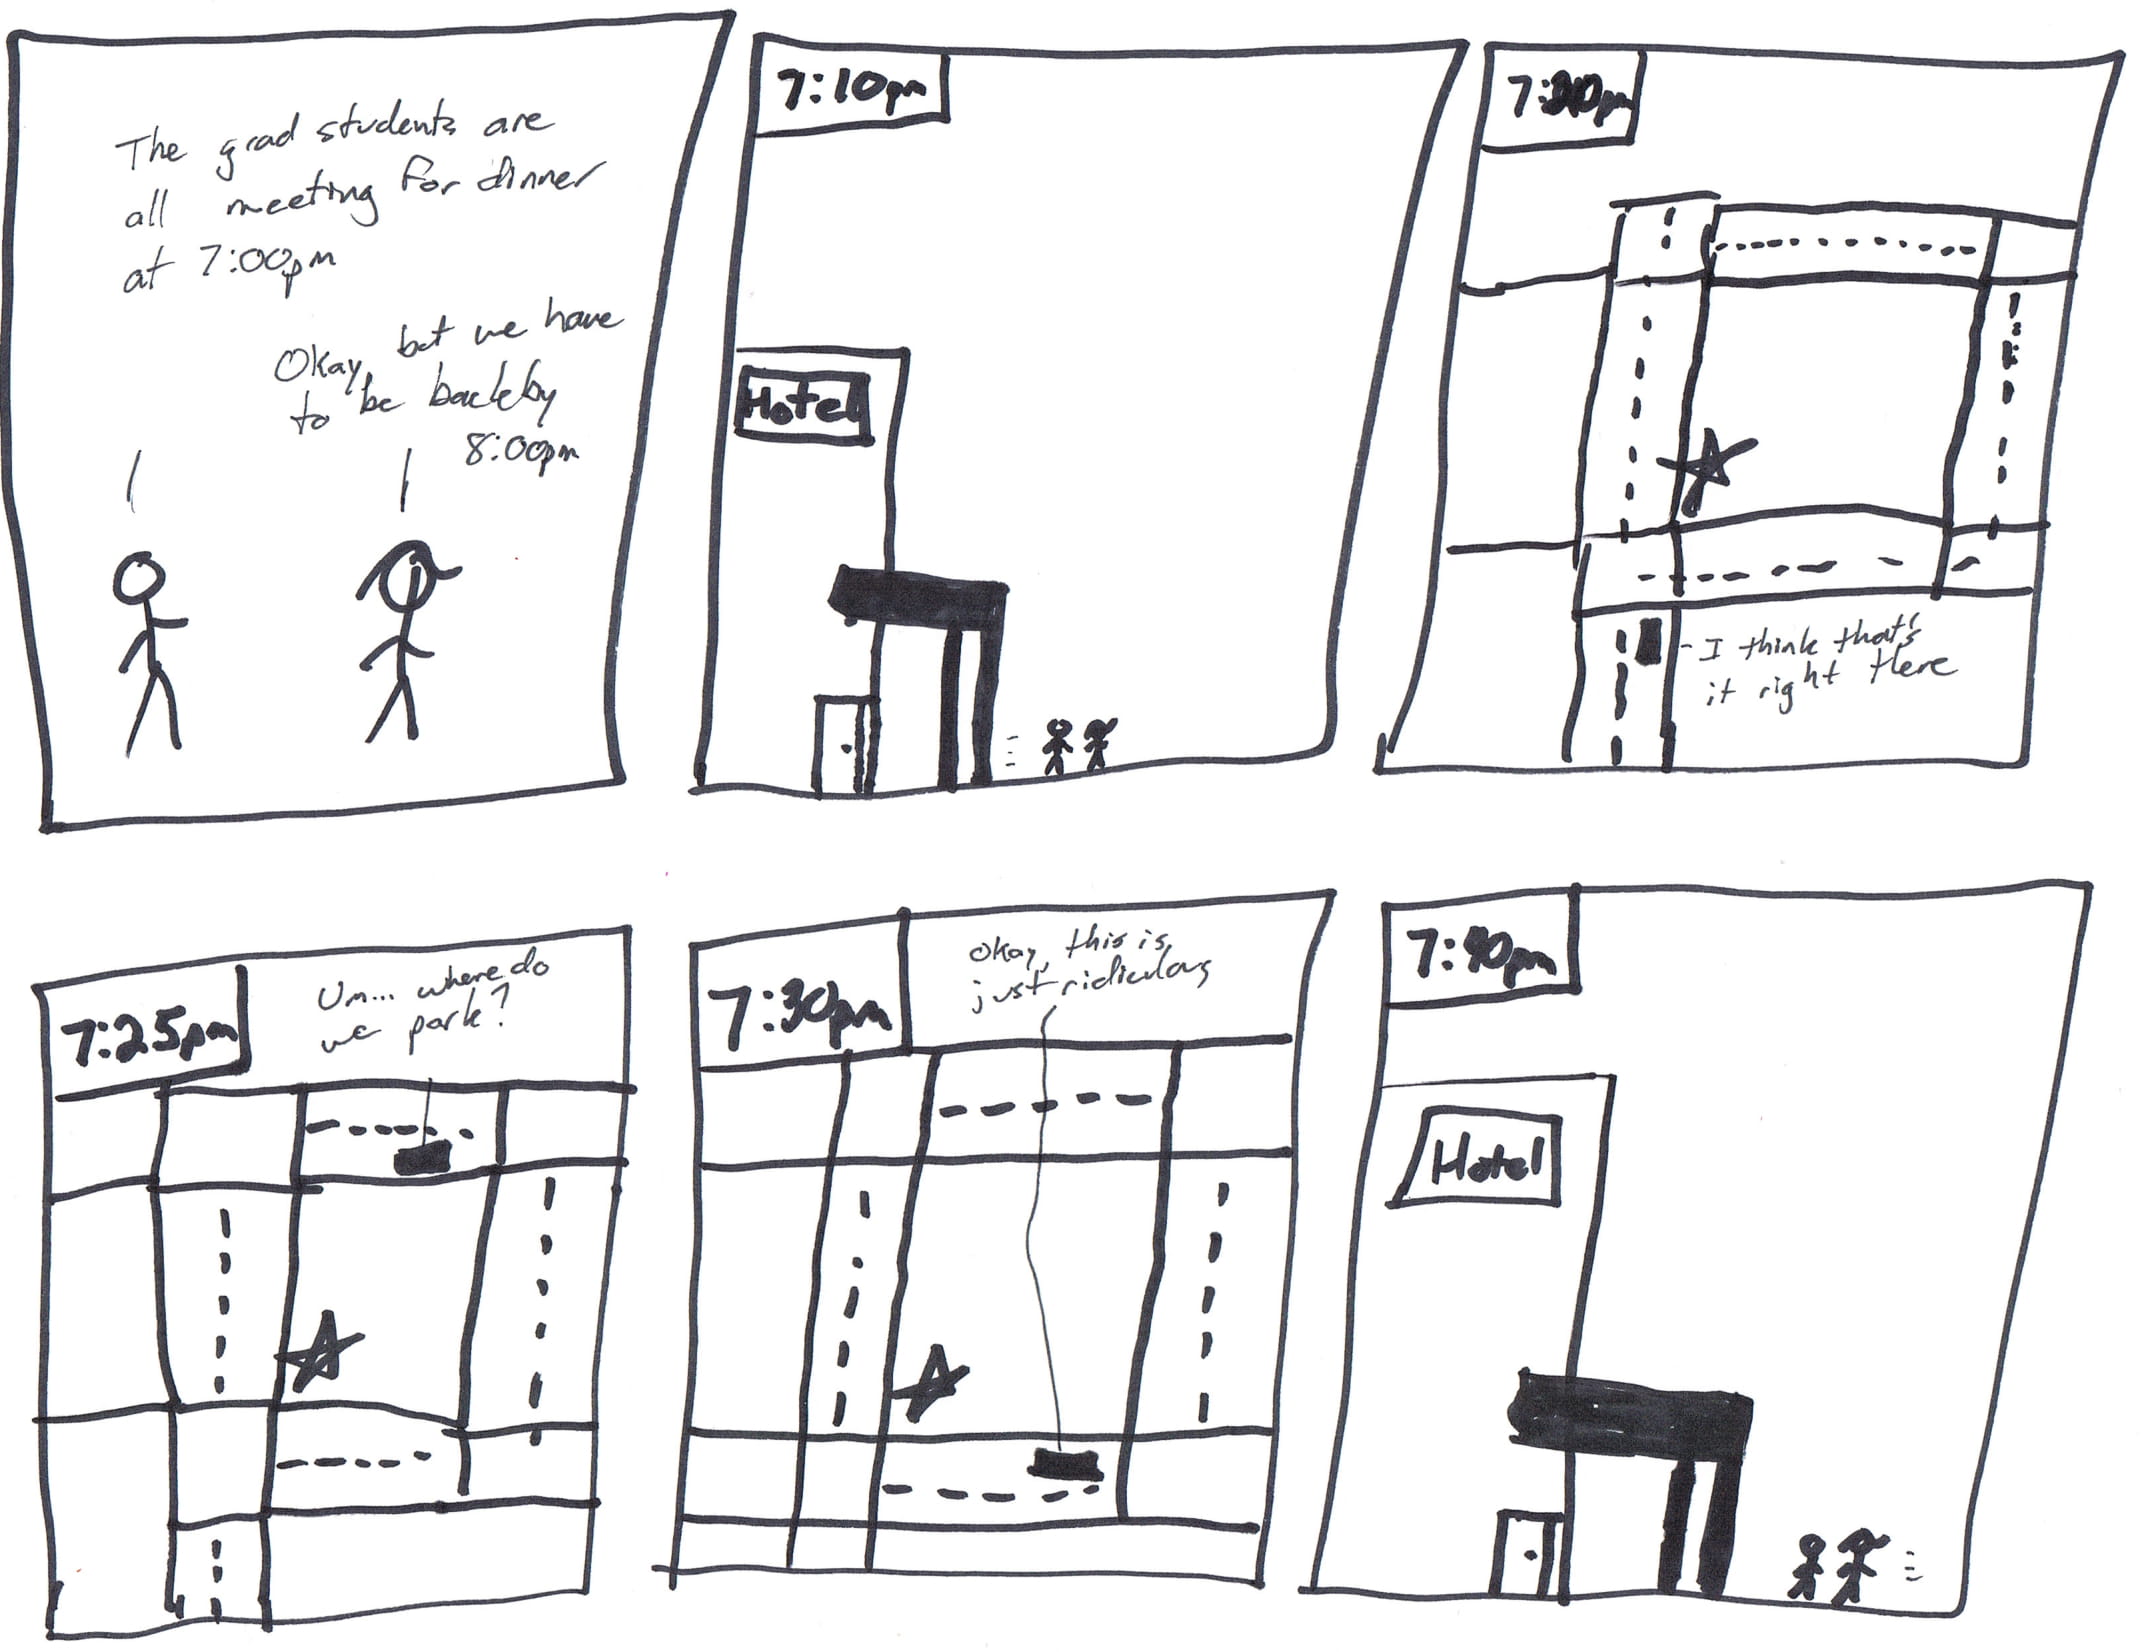 The grad students are
all meeting for dinner
at 7:00pm
Okay, but we have
to be back by
8:00pm
7:10pm
Hotel
7:20pm
I think that's
it right there
7:25pm
Um... where do
we park?
7:30pm
Okay, this is
just ridiculous
7:40pm
Hotel